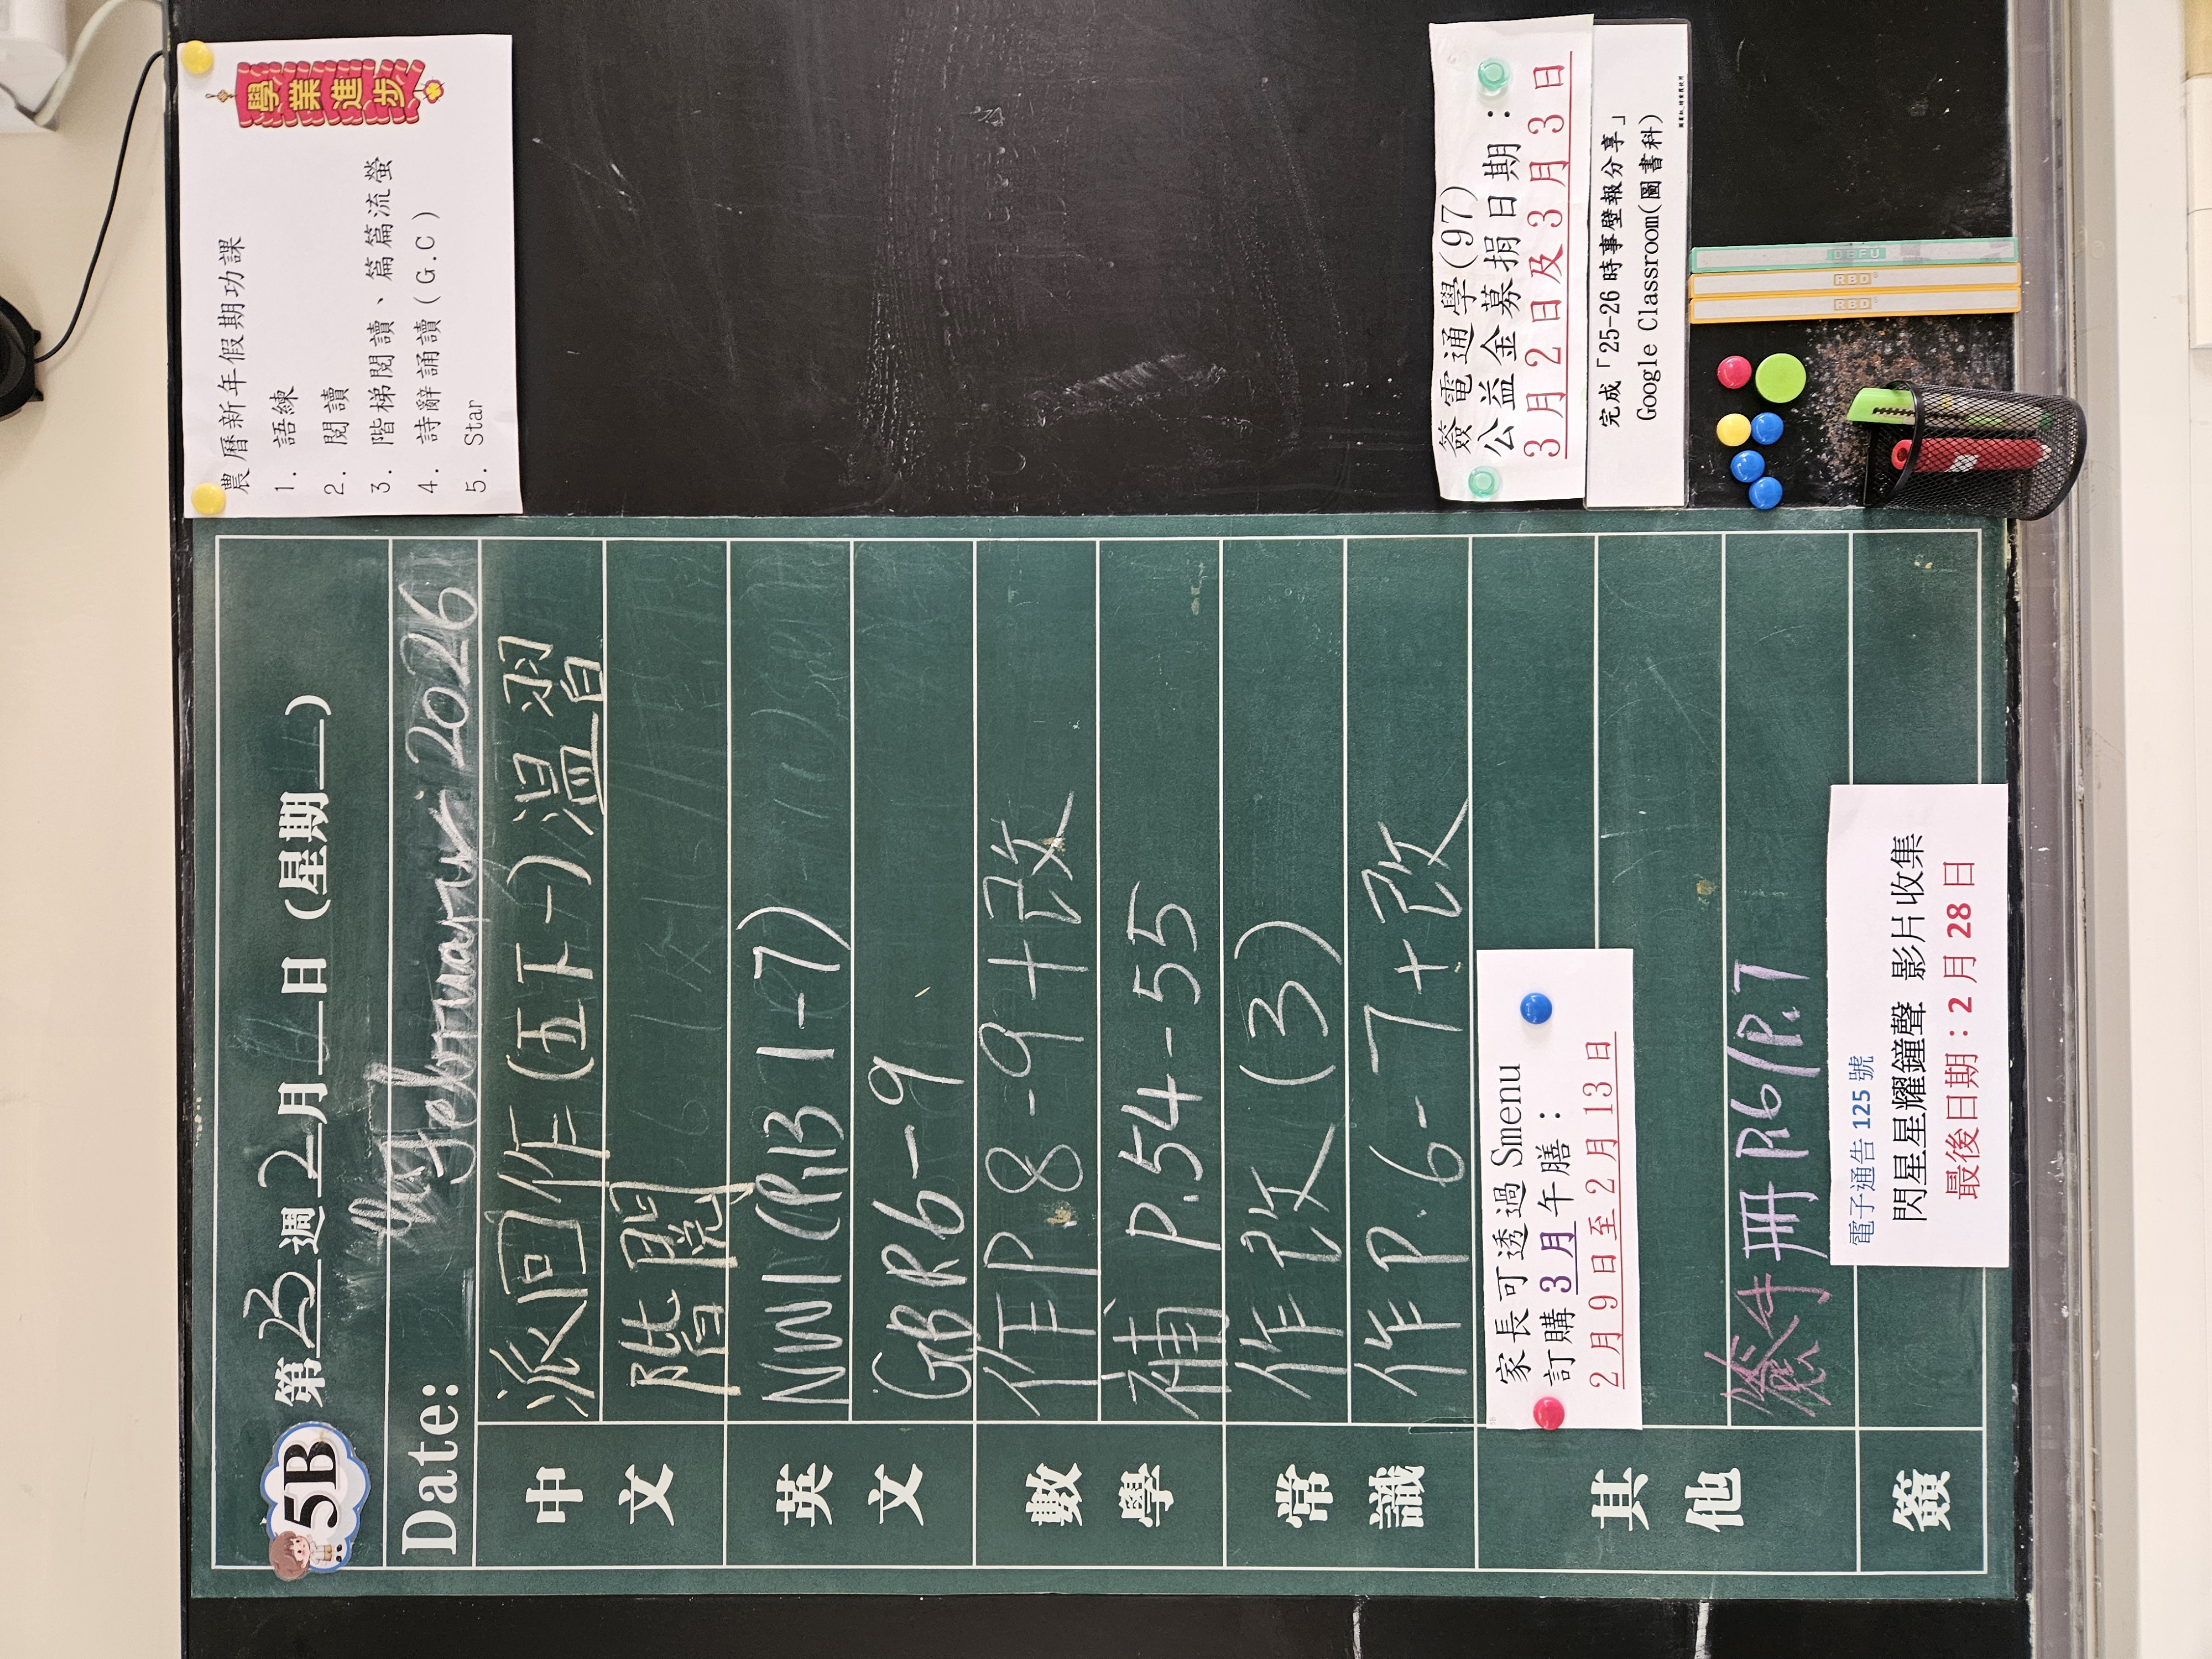 5B 第 23 週 2 月 日 (星期 )
Date: February 2026
中文
派回作(伍下一)溫習
階閱
英文
NW1(P.1B 1-7)
GB R6-9
數學
作P 8-9+改
補 P.54-55
常識
作改(3)
作P.6-7+改
其他
家長可透過 Smenu
訂購 3 月午膳：
2 月 9 日至 2 月 13 日
簽手冊 P.
簽
電子通告 125 號
閃星星耀鐘聲 影片收集
最後日期：2 月 28 日
農曆新年假期功課
1. 語練
2. 閱讀
3. 階梯閱讀、篇篇流螢
4. 詩辭誦讀(G.C)
5. Star
學業進步
簽電通學(97)
公益金募捐日期：
3 月 2 日及 3 月 3 日
完成「25-26 時事壁報分享」
Google Classroom(圖書科)
DEFU
RBD
RBD